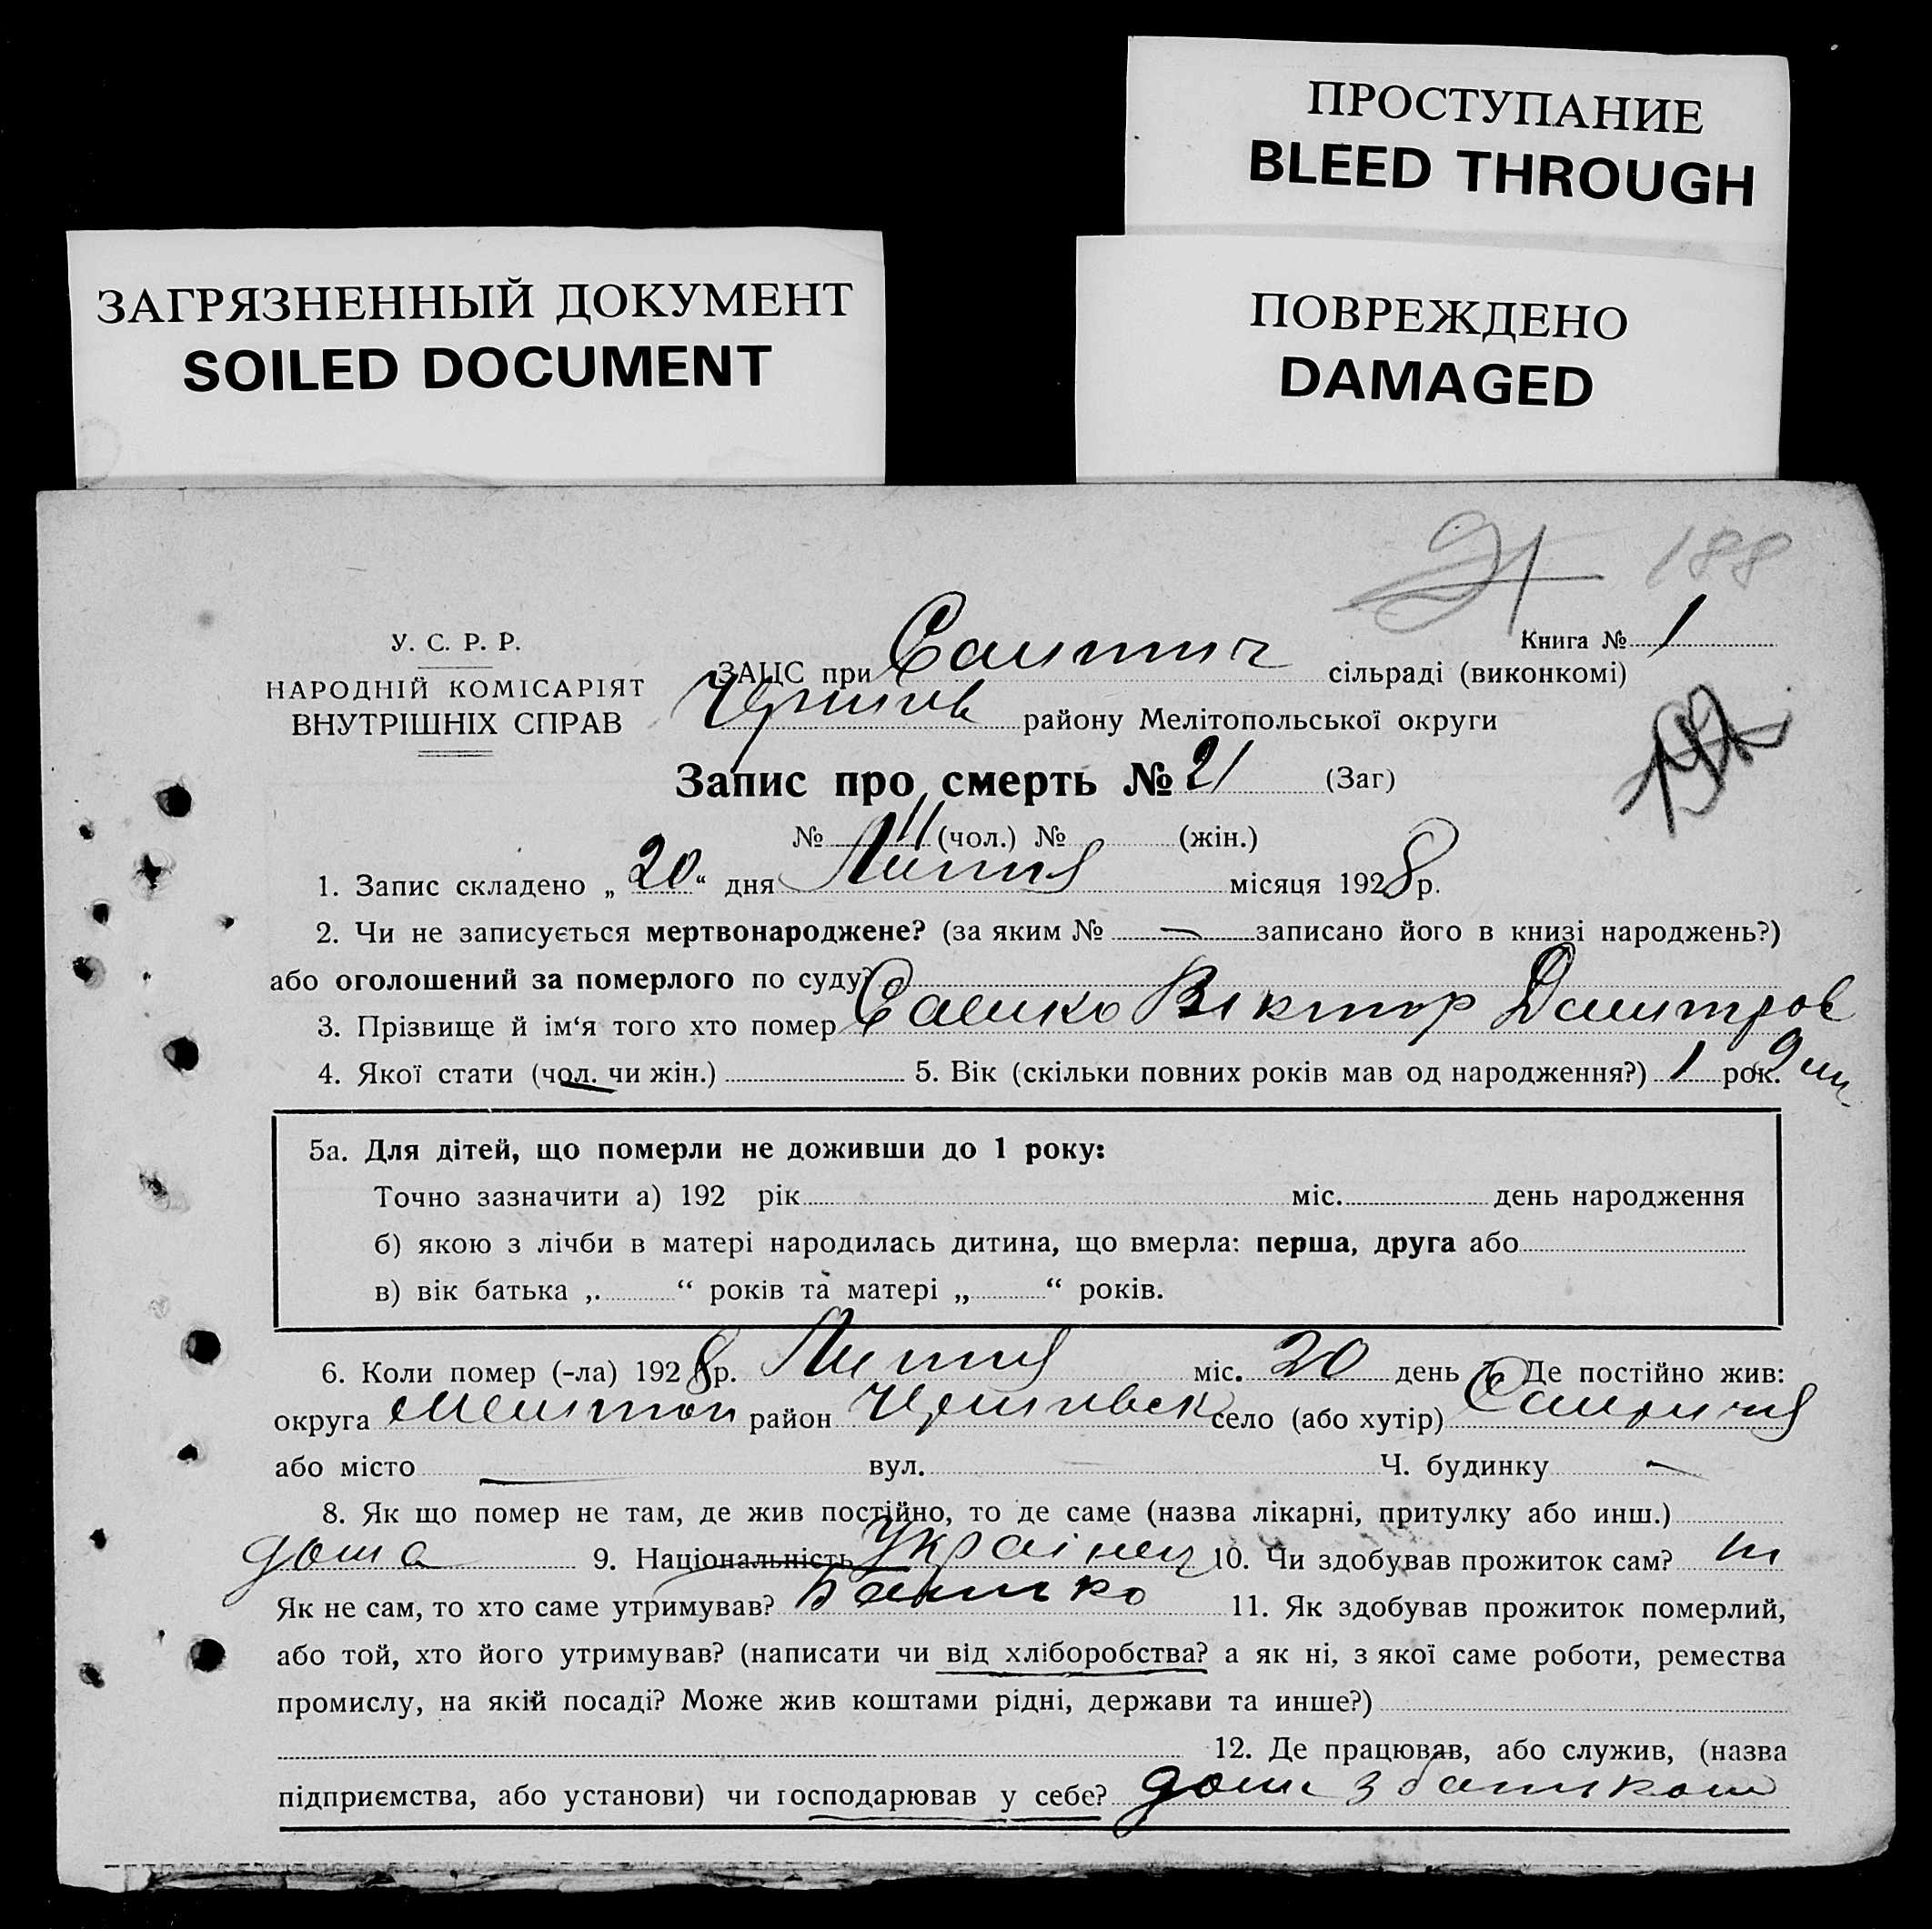 ПРОСТУПАНИЕ
BLEED THROUGH
ЗАГРЯЗНЕННЫЙ ДОКУМЕНТ
SOILED DOCUMENT
ПОВРЕЖДЕНО
DAMAGED
188
Книга № 1
У. С. Р. Р.
НАРОДНІЙ КОМІСАРІЯТ
ВНУТРІШНІХ СПРАВ
ЗАЦС при сільраді (виконкомі)
району Мелітопольської округи
Запис про смерть № 21 (Заг)
№ 11 (чол.) № (жін.)
1. Запис складено „ 20 “ дня Липня місяця 1928 р.
2. Чи не записується мертвонароджене? (за яким № — записано його в книзі народжень?)
або оголошений за померлого по суду?
3. Прізвище й ім‘я того хто помер Саенко Віктор Дмитров
4. Якої стати (чол. чи жін.) 5. Вік (скільки повних років мав од народження?) 1 рок. 9 м
5а. Для дітей, що померли не доживши до 1 року:
Точно зазначити а) 192 рік міс. день народження
б) якою з лічби в матері народилась дитина, що вмерла: перша, друга або
в) вік батька „ “ років та матері „ “ років.
6. Коли помер (-ла) 1928 р. Липня міс. 20 день 7. Де постійно жив:
округа Мелитоп район село (або хутір)
або місто — вул. Ч. будинку —
8. Як що помер не там, де жив постійно, то де саме (назва лікарні, притулку або инш.)
дома 9. Національність Украінец 10. Чи здобував прожиток сам? ні
Як не сам, то хто саме утримував? Батько 11. Як здобував прожиток померлий,
або той, хто його утримував? (написати чи від хліборобства? а як ні, з якої саме роботи, ремества
промислу, на якій посаді? Може жив коштами рідні, держави та инше?)
12. Де працював, або служив, (назва
підприємства, або установи) чи господарював у себе? дома з батьком